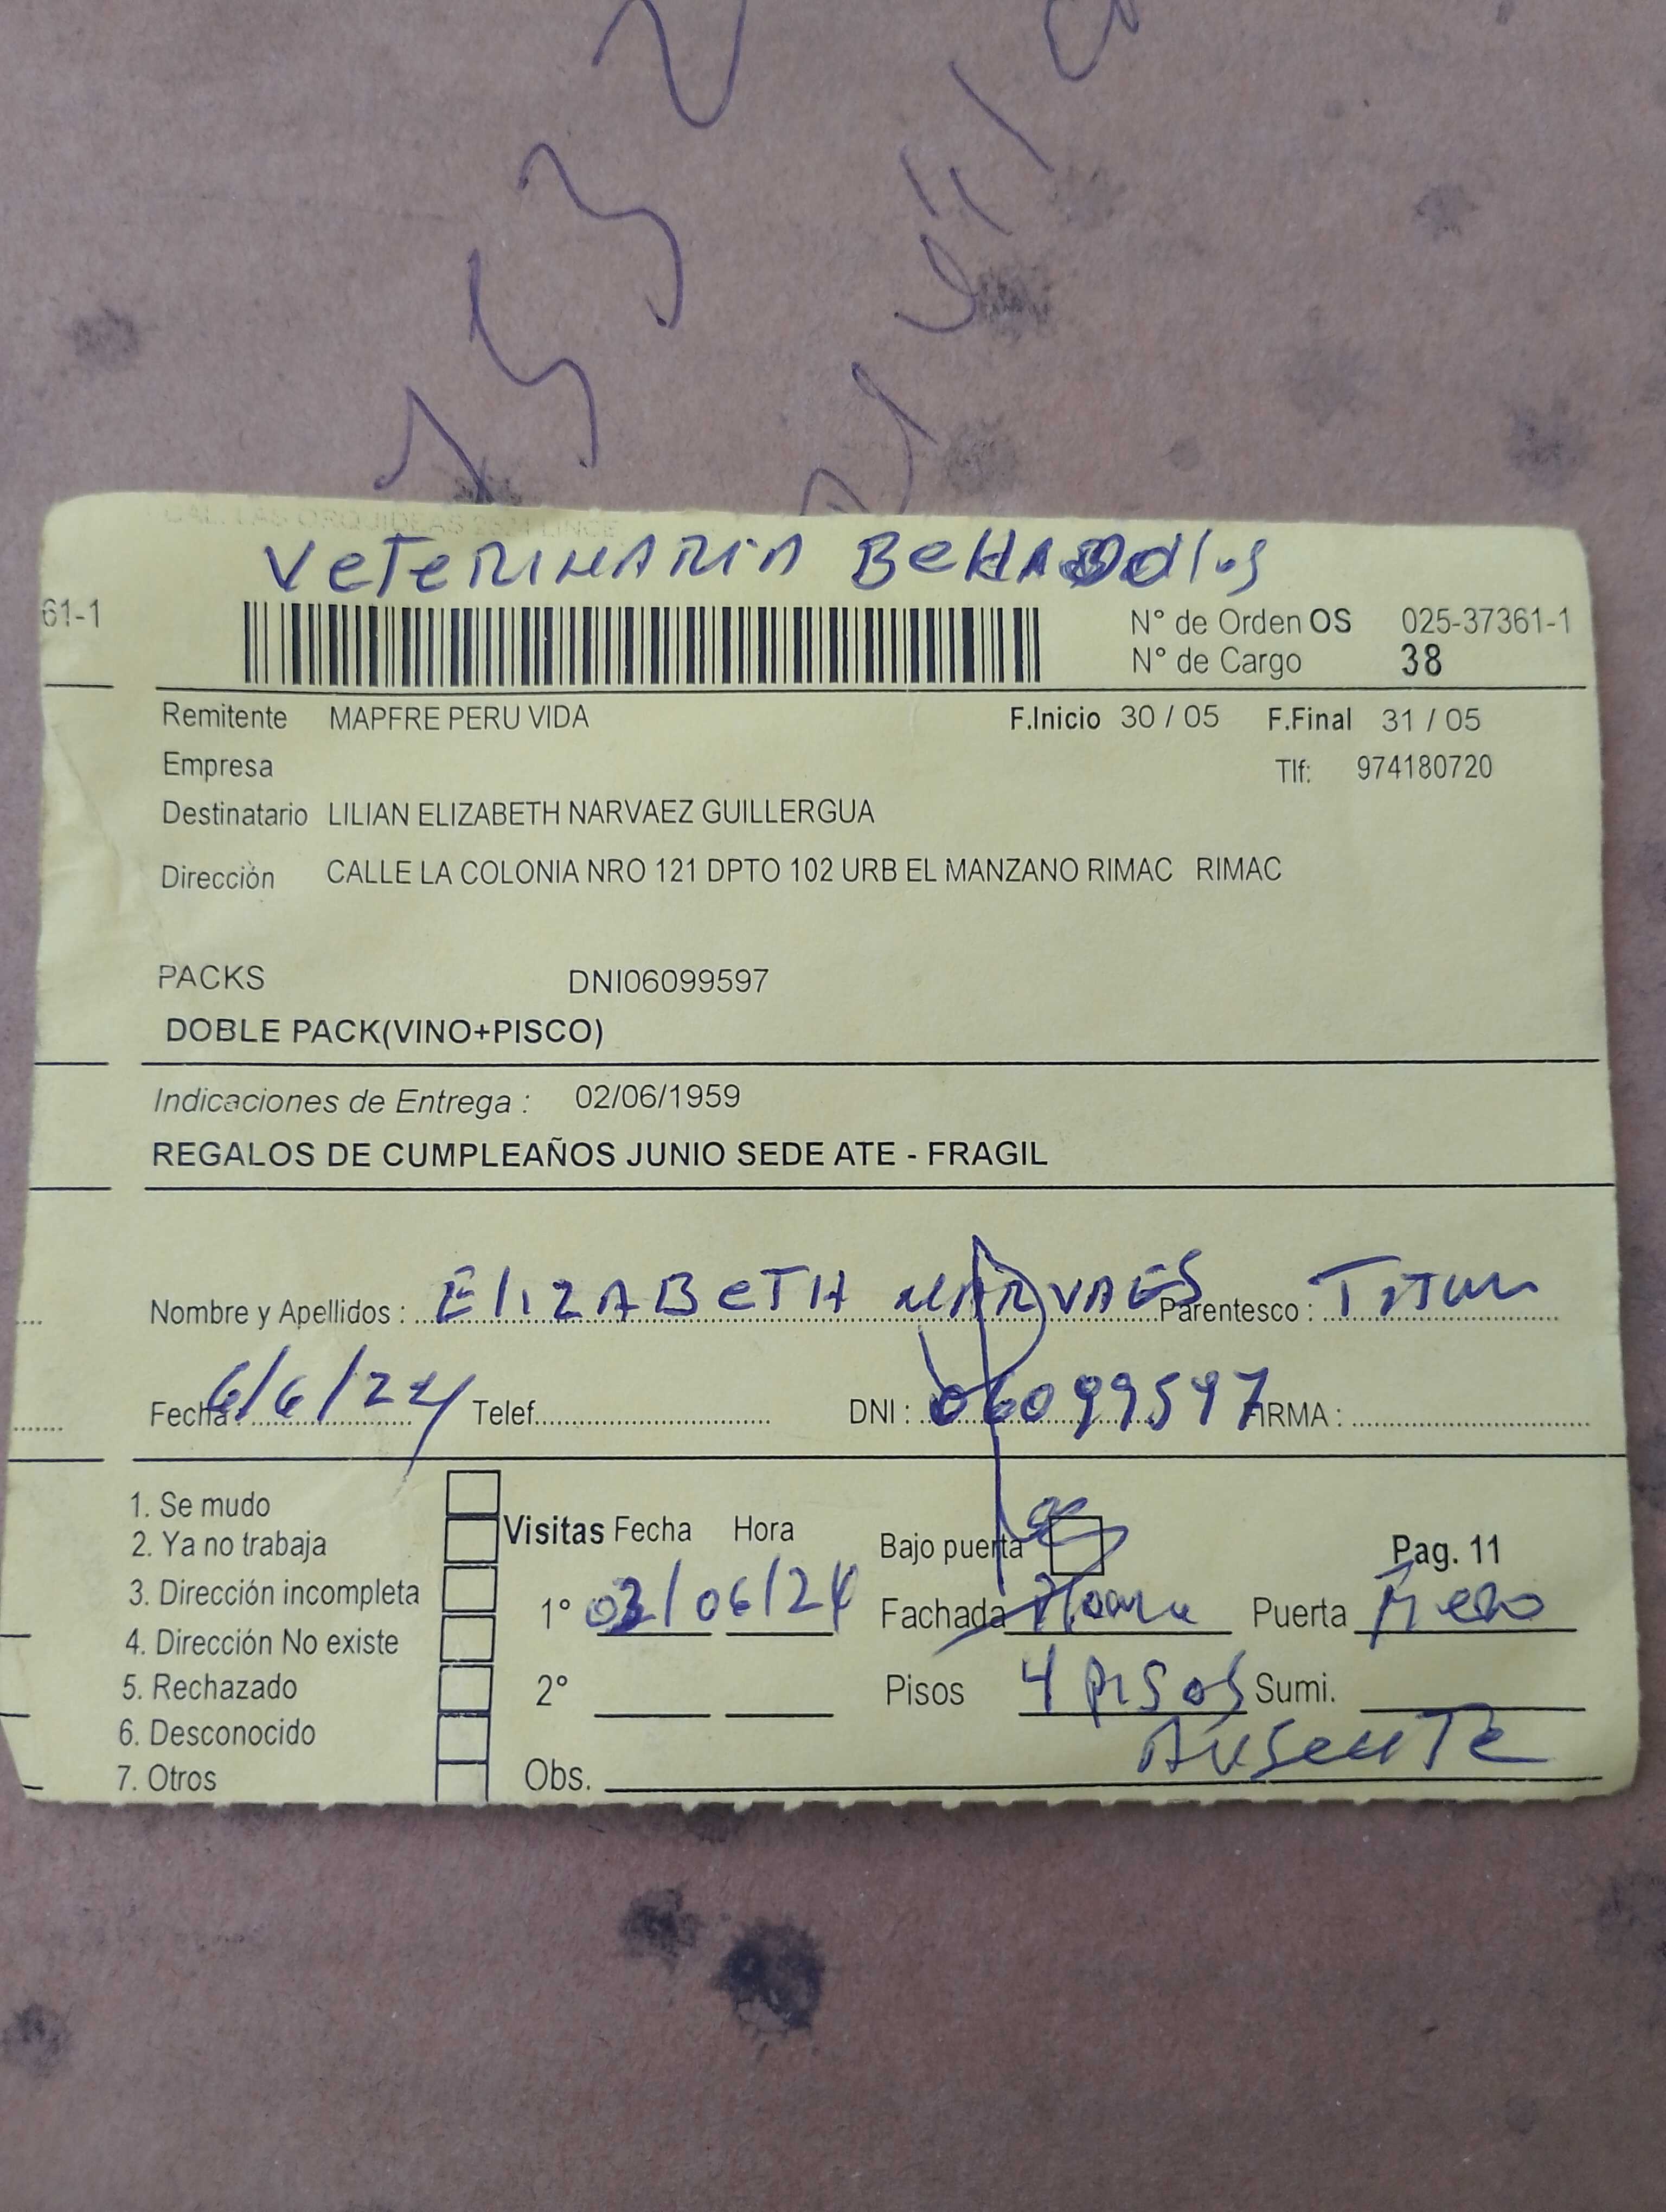 CAL. LAS ORQUIDEAS
VETERINARIA
61-1
N° de Orden OS 025-37361-1
N° de Cargo 38
Remitente MAPFRE PERU VIDA F.Inicio 30 / 05 F.Final 31 / 05
Empresa Tlf: 974180720
Destinatario LILIAN ELIZABETH NARVAEZ GUILLERGUA
Dirección CALLE LA COLONIA NRO 121 DPTO 102 URB EL MANZANO RIMAC RIMAC
PACKS DNI06099597
DOBLE PACK(VINO+PISCO)
Indicaciones de Entrega : 02/06/1959
REGALOS DE CUMPLEAÑOS JUNIO SEDE ATE - FRAGIL
Nombre y Apellidos : ELIZABETH NARVAES Parentesco :
Fecha 6/6/24 Telef. DNI : 06099597 FIRMA :
1. Se mudo
2. Ya no trabaja
3. Dirección incompleta
4. Dirección No existe
5. Rechazado
6. Desconocido
7. Otros
Visitas Fecha Hora Bajo puerta Pag. 11
1° 03/06/24 Fachada Puerta
2° Pisos 4 PISOS Sumi.
AUSENTE
Obs.